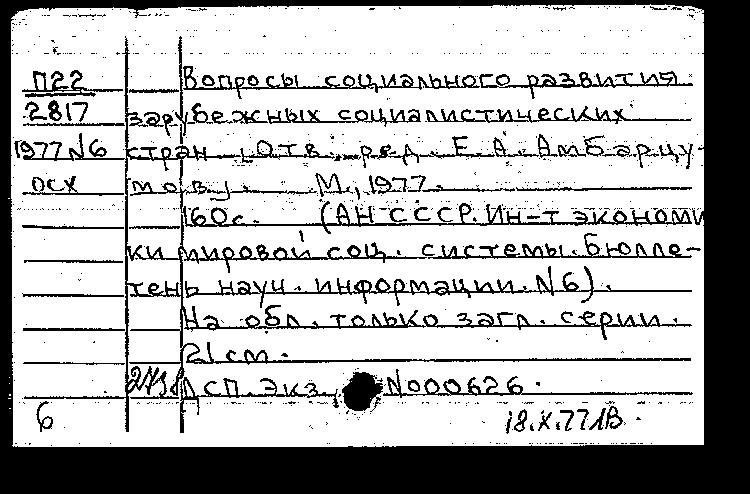 П22 Вопросы социального развития
2817 зарубежных социалистических
1977 N6 стран, Отв. ред. Е. А. Амбарцу-
осх мов]. М., 1977.
160с. (АН СССР. Ин-т экономи
ки мировой соц. системы. Бюлле-
тень науч. информации. N6).
На обл. только загл. серии.
21 см.
ДСП. Экз. N000626.
6 18.X.77